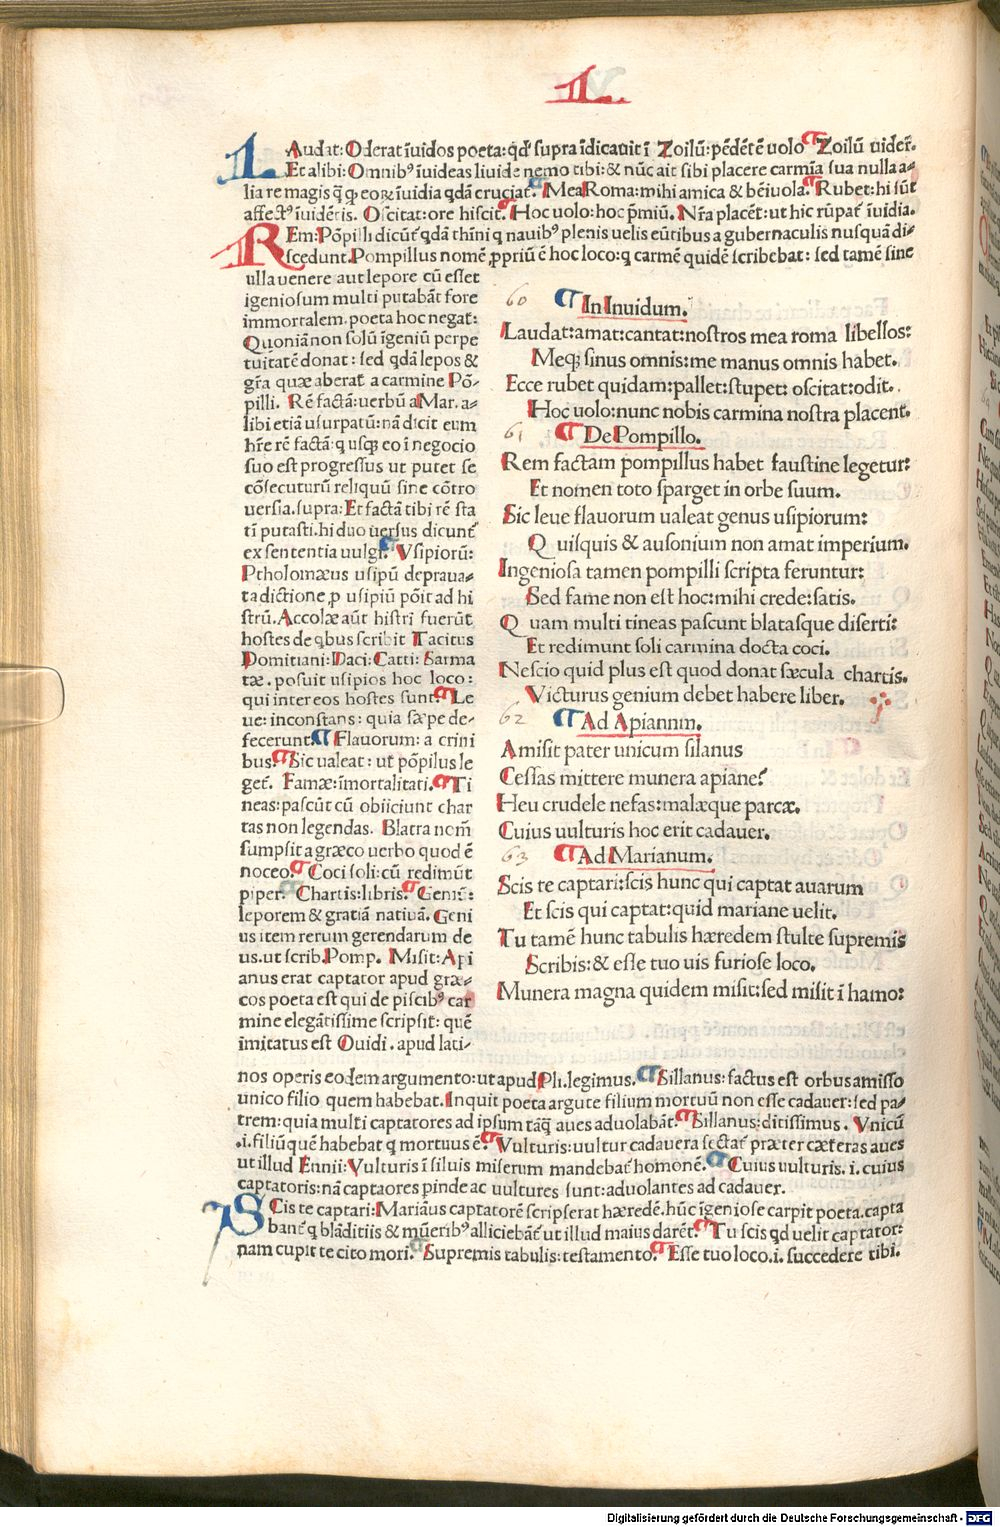 L
LAudat: Oderat īuidos poeta: qd' supra īdicauit ī Zoilū: pēdētē uolo ¶ Zoilū uider̄.
Et alibi: Omnibꝰ īuideas liuide nemo tibi: & nūc ait sibi placere carmīa sua nulla a-
lia re magis q̄ ꝙ eoꝝ īuidia qdā cruciat̄. ¶ Mea Roma: mihi amica & bēiuola. ¶ Rubet: hi sūt
affectꝰ īuidētis. Oscitat: ore hiscit. ¶ Hoc uolo: hoc p̄miū. Nr̄a placēt: ut hic rūpat̄ īuidia.
REm: Pōpilli dicūt̄ qdā thīni q nauibꝰ plenis uelis eūtibus a gubernaculis nusquā di-
scedunt. Pompillus nomē ꝓpriū ē hoc loco: q carmē quidē scribebat: sed tamē sine
ulla uenere aut lepore cū esset
igeniosum multi putabāt fore
immortalem. poeta hoc negat:
Quoniā non solū īgeniū perpe
tuitatē donat: sed qdā lepos &
gr̄a quæ aberat̄ a carmine Pō-
pilli. Rē factā: uerbū a Mar. a-
libi etiā usurpatū: nā dicit eum
hr̄e rē factā: q usqꝫ eo ī negocio
suo est progressus ut putet se
cōsecuturū reliquū sine cōtro
uersia. supra: Et factā tibi rē sta
tī putasti. hi duo uersus dicunt̄
ex sententia uulgi. ¶ Vsipiorū:
Ptholomæus usipū depraua-
ta dictione ꝓ usipiū pōit ad hi
strū. Accolæ aūt histri fuerūt
hostes de qbus scribit Tacitus
Domitiani: Daci: Catti: Sarma
tæ. posuit usipios hoc loco:
qui inter eos hostes sunt. ¶ Le
ue: inconstans: quia sæpe de-
fecerunt. ¶ Flauorum: a crini
bus. ¶ Sic ualeat: ut pōpilus le
get̄. Famæ: īmortalitati. ¶ Ti
neas: pascūt cū obiiciunt char
tas non legendas. Blatta nom̄
sumpsit a græco uerbo quod ē
noceo. ¶ Coci soli: cū redimūt
piper. ¶ Chartis: libris. ¶ Geniū:
leporem & gratiā natiuā. Geni
us item rerum gerendarum de
us. ut scrib. Pomp. Misit: Api
anus erat captator apud græ-
cos poeta est qui de piscibꝰ car
mine elegātissime scripsit: quē
imitatus est Ouidi. apud lati-
60 ¶ In Inuidum.
Laudat: amat: cantat: nostros mea roma libellos:
Meqꝫ sinus omnis: me manus omnis habet.
Ecce rubet quidam: pallet: stupet: oscitat: odit.
Hoc uolo: nunc nobis carmina nostra placent.
61 ¶ De Pompillo.
Rem factam pompillus habet faustine legetur:
Et nomen toto sparget in orbe suum.
Sic leue flauorum ualeat genus usipiorum:
Quisquis & ausonium non amat imperium.
Ingeniosa tamen pompilli scripta feruntur:
Sed fame non est hoc: mihi crede: satis.
Quam multi tineas pascunt blatasque diserti:
Et redimunt soli carmina docta coci.
Nescio quid plus est quod donat sæcula chartis.
Victurus genium debet habere liber.
62 ¶ Ad Apiannm.
Amisit pater unicum silanus
Cessas mittere munera apiane?
Heu crudele nefas: malæque parcæ.
Cuius uulturis hoc erit cadauer.
63 ¶ Ad Marianum.
Scis te captari: scis hunc qui captat auarum
Et scis qui captat: quid mariane uelit.
Tu tamē hunc tabulis hæredem stulte supremis
Scribis: & esse tuo uis furiose loco.
Munera magna quidem misit: sed misit ī hamo:
nos operis eodem argumento: ut apud Pli. legimus. ¶ Sillanus: factus est orbus amisso
unico filio quem habebat. Inquit poeta argute filium mortuū non esse cadauer: sed pa-
trem: quia multi captatores ad ipsum tāq̄ aues aduolabāt. ¶ Sillanus: ditissimus. Vnicū
.i. filiū quē habebat q mortuus ē. ¶ Vulturis: uultur cadauera sectat̄ præter cæteras aues
ut illud Ennii: Vulturis ī siluis miserum mandebat̄ homonē. ¶ Cuius uulturis. i. cuius
captatoris: nā captaores pinde ac uultures sunt: aduolantes ad cadauer.
SCis te captari: Mariāus captatorē scripserat hæredē. hūc īgeniose carpit poeta. capta
bant̄ q blāditiis & mūeribꝰ alliciebāt̄ ut illud maius darēt. ¶ Tu scis qd uelit captator:
nam cupit te cito mori. ¶ Supremis tabulis: testamento. ¶ Esse tuo loco. i. succedere tibi.
Digitalisierung gefördert durch die Deutsche Forschungsgemeinschaft - DFG